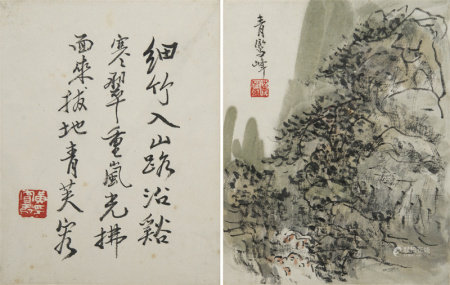 細竹入山路沿谿
寒翠重嵐光拂
面來拔地青芙蓉
青鸞峰